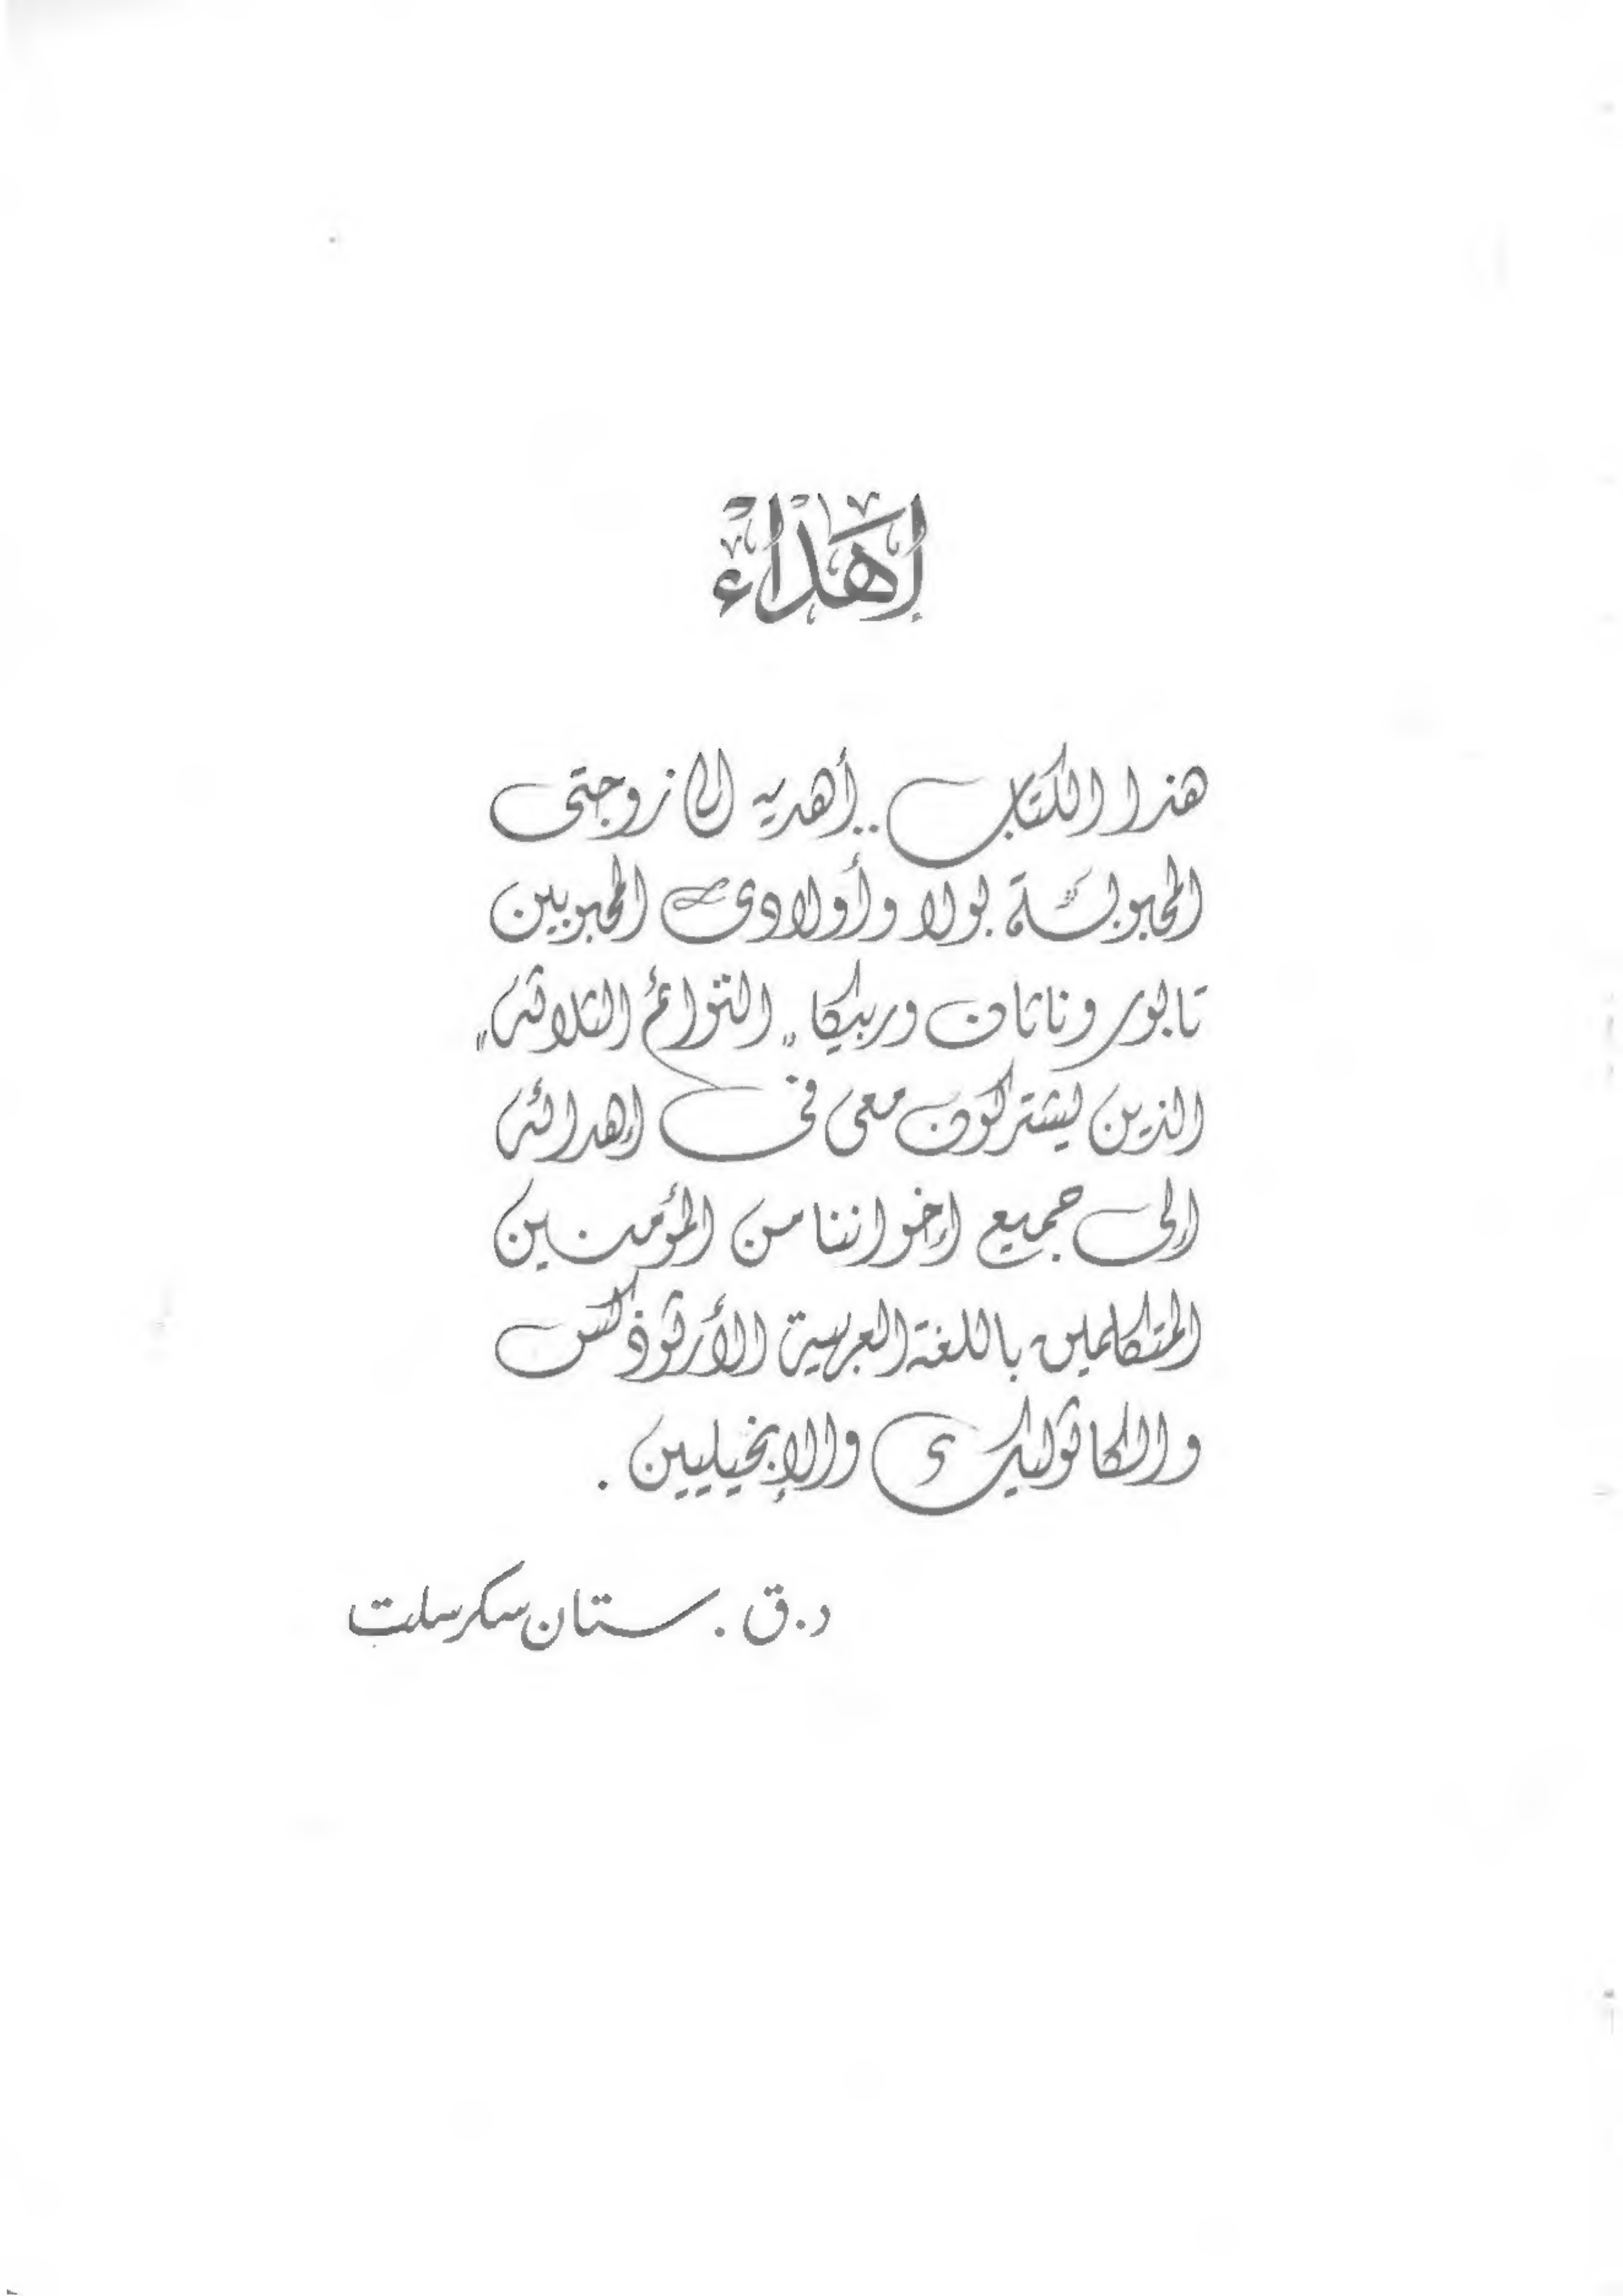 إهداء
هذا الكتاب .. أهديه إلى زوجتى
المحبوبة بولا وأولادى المحبوبين
تابور وناثان وربيكا "التوائم الثلاثة"
الذين يشتركون معى فى إهدائه
إلى جميع إخواننا من المؤمنين
المتكلمين باللغة العربية الأرثوذكس
والكاثوليك والإنجيليين .
د.ق. ستان سكرسلت